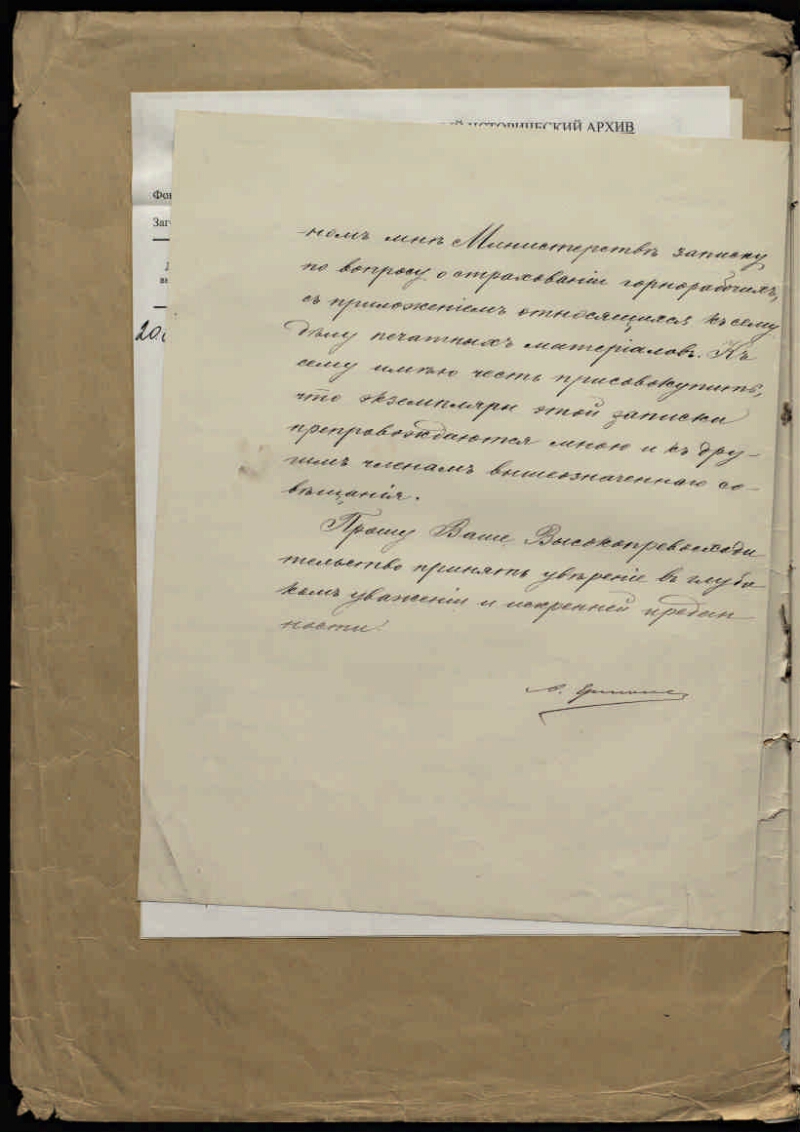 ИСТОРИЧЕСКИЙ АРХИВ
Фон
Заг
20
номъ мнѣ Министерствѣ записку
по вопросу о страхованіи горнорабочихъ,
съ приложеніемъ относящихся къ сему
дѣлу печатныхъ матеріаловъ. Къ
сему имѣю честь присовокупить,
что экземпляры этой записки
препровождаются мною и къ дру-
гимъ членамъ вышеозначеннаго со-
вѣщанія.
Прошу Ваше Высокопревосходи
тельство принять увѣреніе въ глубо
комъ уваженіи и искренней предан
ности.